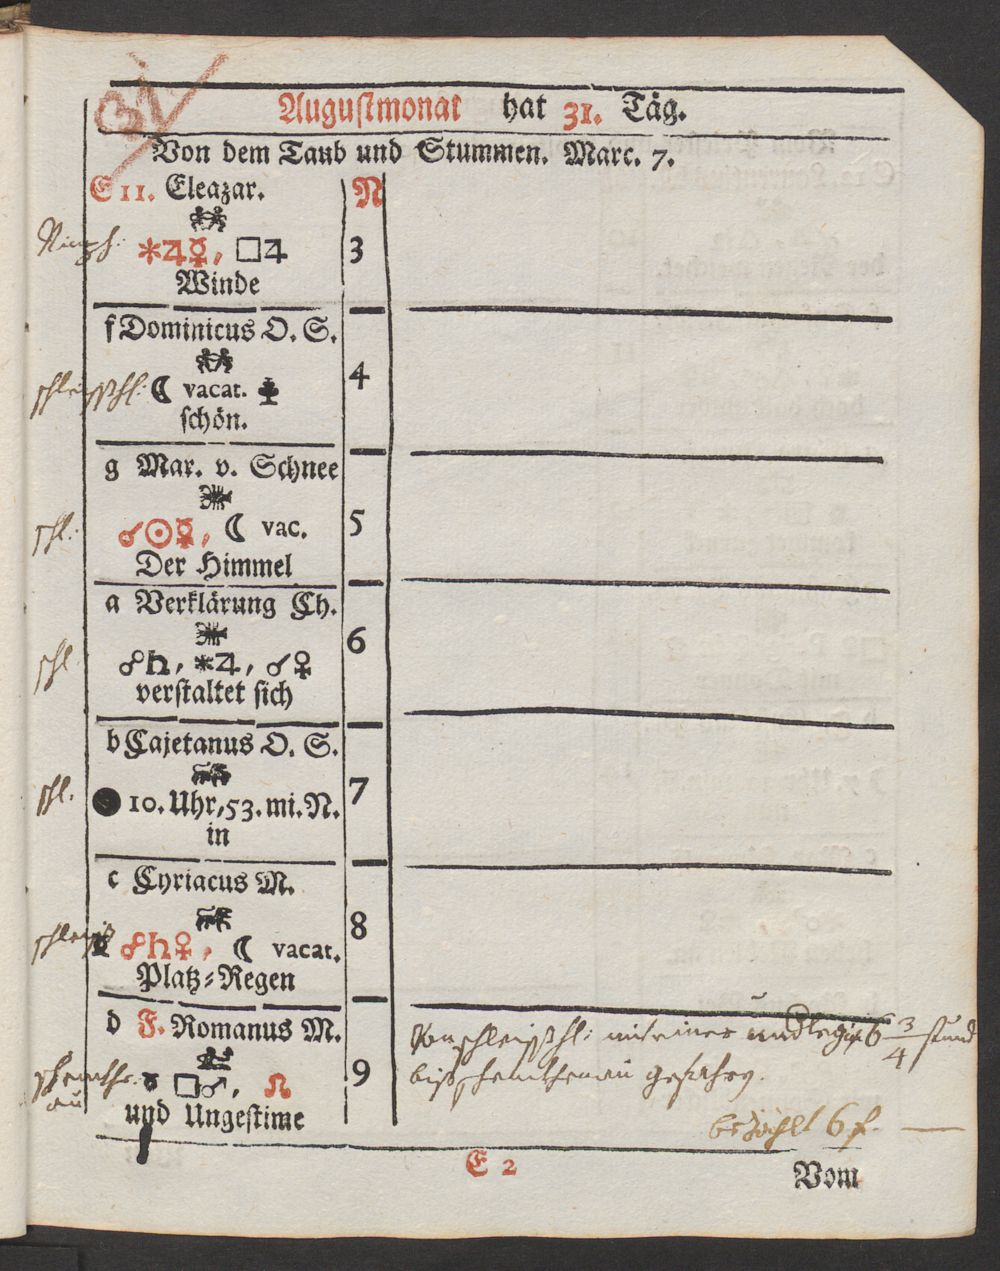 31
Augustmonat hat 31. Täg.
Von dem Taub und Stummen. Marc. 7.
E 11. Eleazar. N
✶♃☿, □♃ 3
Winde
f Dominicus O. S.
☾ vacat. 4
schön.
g Mar. v. Schnee
schl: ☌☉☿, ☾ vac. 5
Der Himmel
a Verklärung Ch.
schl: ☍♄, ✶♃, ☌♀ 6
verstaltet sich
b Cajetanus O. S.
schl. ● 10. Uhr, 53. mi. N. 7
in
c Cyriacus M.
☍♄♀, ☾ vacat. 8
Platz-Regen
d F. Romanus M.
□♂, ☊ 9
und Ungestime
Von schleissh: mit einer 6 3/4 stund
biss gefahrn.
bezahlt 6 f. —
E 2
Vom